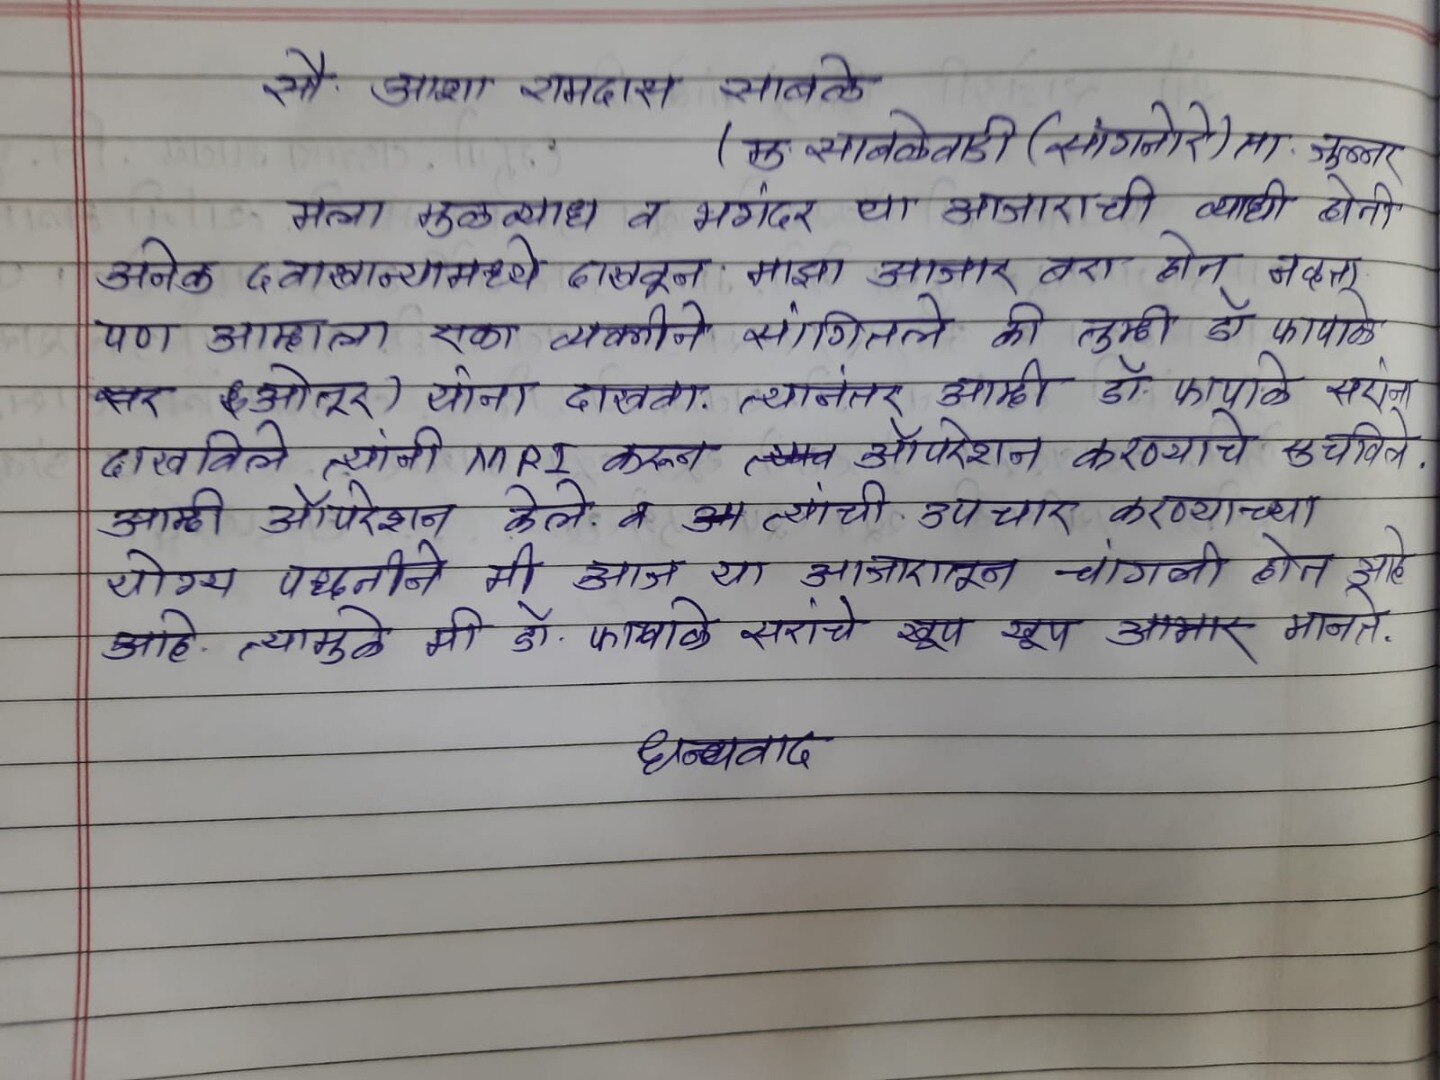 सौ. आशा रामदास साबळे
(मु. साबळेवाडी (सांगनोरे) ता. जुन्नर
मला मुळव्याध व भगंदर या आजाराची व्याधी होती
अनेक दवाखान्यामध्ये दाखवून माझा आजार बरा होत नव्हता
पण आम्हाला एका व्यक्तीने सांगितले की तुम्ही डॉ फापाळे
सर (ओतूर) यांना दाखवा. त्यानंतर आम्ही डॉ. फापाळे सरांना
दाखविले त्यांनी MRI करून ऑपरेशन करण्याचे सुचविले.
आम्ही ऑपरेशन केले. व त्यांची उपचार करण्याच्या
योग्य पध्दतीने मी आज या आजारातून चांगली होत आहे
आहे. त्यामुळे मी डॉ. फापाळे सरांचे खूप खूप आभार मानते.
धन्यवाद